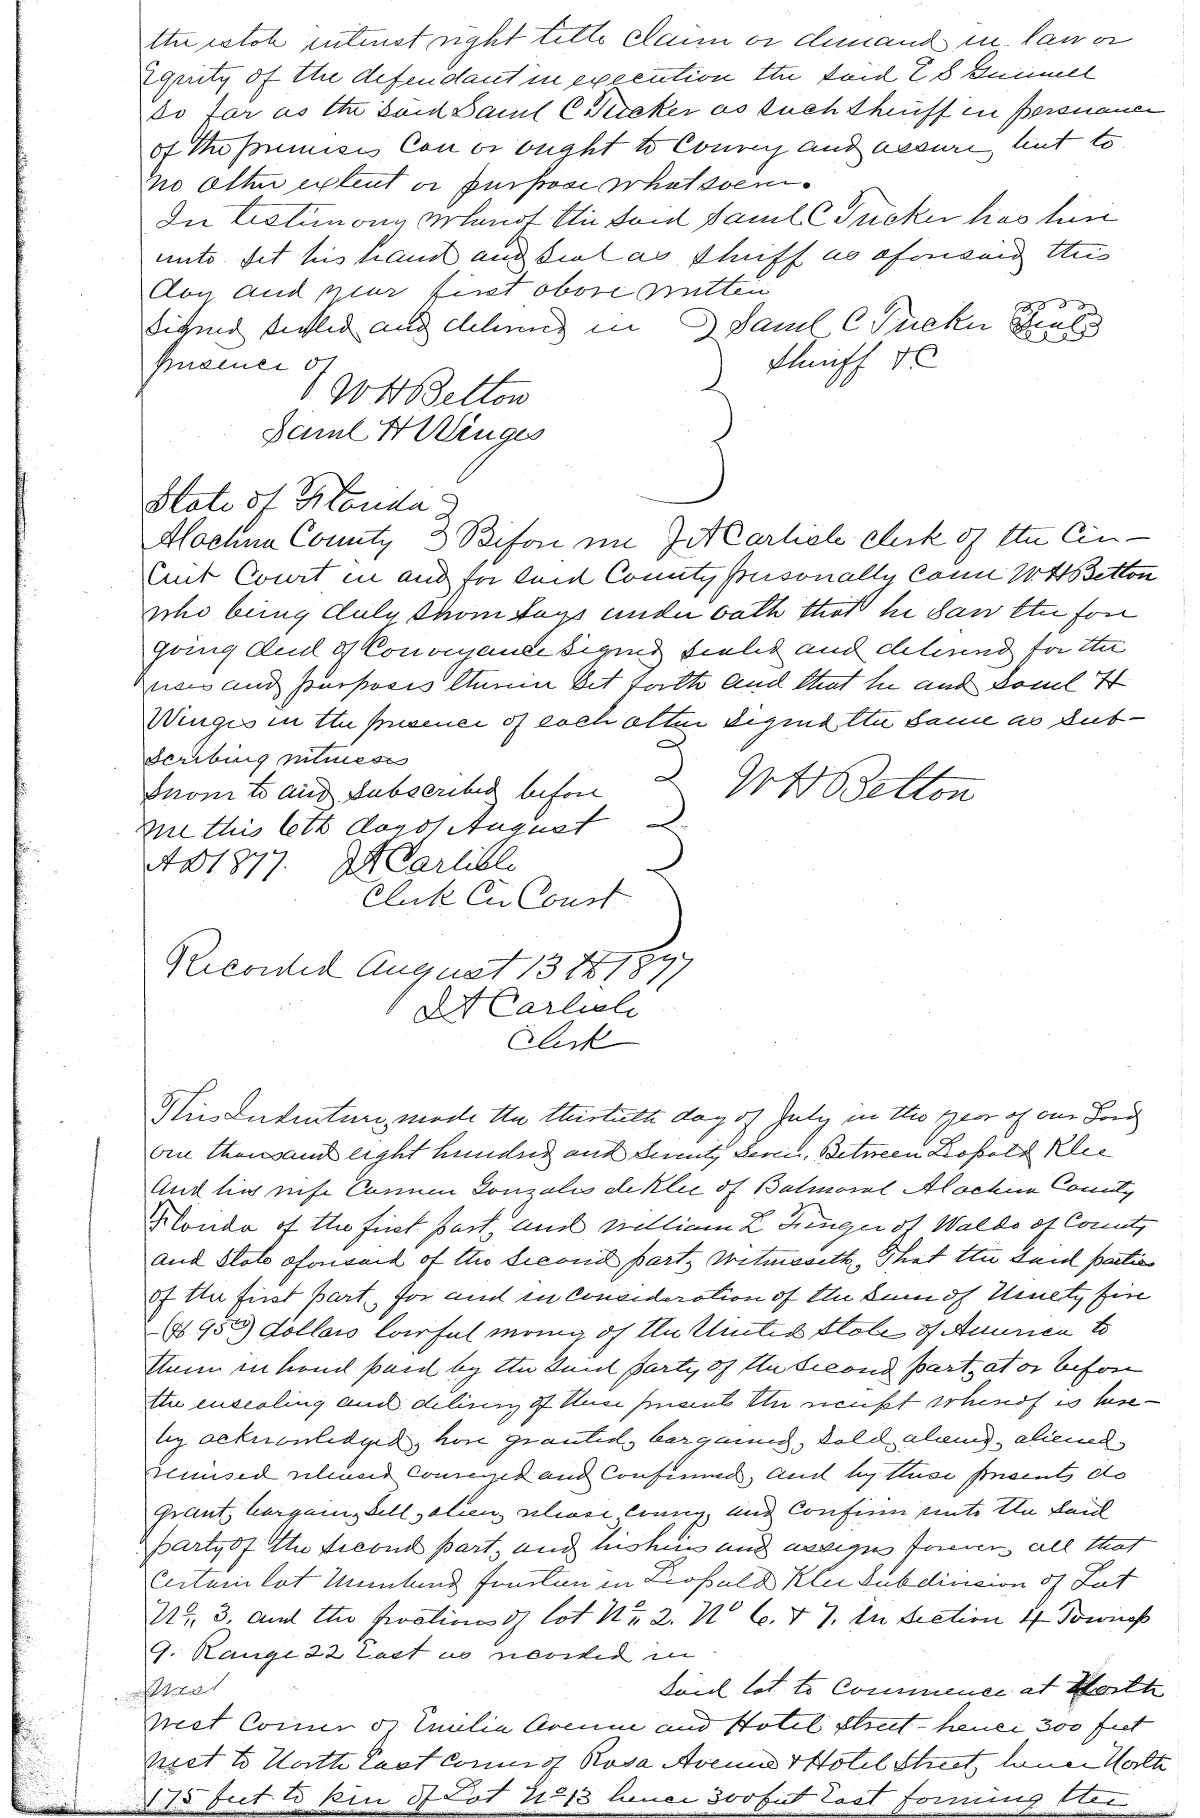 the estate interest right title claim or demand in law or
Equity of the defendant in execution the said E S Gunnell
so far as the said Saml C Tucker as such Sheriff in persuance
of the premises Can or ought to Convey and assure, but to
no other extent or purpose whatsoever.
In testimony whereof the said Saml C Tucker has here
unto set his hand and seal as Sheriff as aforesaid this
day and year first above written
Signed sealed and delivered in Saml C Tucker Seal
presence of Sheriff A.C
W H Belton
Saml H Winges
State of Florida
Alachua County Before me J A Carlisle clerk of the Cir-
cuit Court in and for said County personally came W H Belton
who being duly sworn says under oath that he saw the fore
going deed of Conveyance signed sealed and delivered for the
uses and purposes therein set forth and that he and Saml H
Winges in the presence of each other signed the same as sub-
scribing witnesses
Sworn to and subscribed before W H Belton
me this 6th day of August
AD 1877. J A Carlisle
Clerk Cir Court
Recorded August 13th 1877
J A Carlisle
Clerk
This Indenture, made the thirtieth day of July in the year of our Lord
one thousand eight hundred and seventy seven, Between Leopold Klee
And his wife Carmen Gonzales de Klee of Balmoral Alachua County
Florida of the first part, and William L Finger of Waldo of County
and State aforesaid of the second part, Witnesseth, That the said parties
of the first part, for and in Consideration of the sum of Ninety five
($95 00) dollars lawful money of the United States of America to
them in hand paid by the said party of the second part, at or before
the ensealing and delivery of these presents the receipt whereof is here-
by acknowledged, have granted, bargained, sold, aliened,
remised released conveyed and confirmed, and by these presents do
grant, bargain, sell, alien, release, convey, and confirm unto the said
party of the second part, and his heirs and assigns forever, all that
Certain lot Numbered fourteen in Leopold Klee Subdivision of Lot
No. 3. and the fractions of lot No. 2. No 6. & 7. in Section 4 Townsp
9. Range 22 East as recorded in
Said lot to Commence at North
West Corner of Emilia Avenue and Hotel Street - hence 300 feet
West to North East Corner of Rosa Avenue & Hotel Street, hence North
175 feet to line of Lot No 13 hence 300 feet East forming the